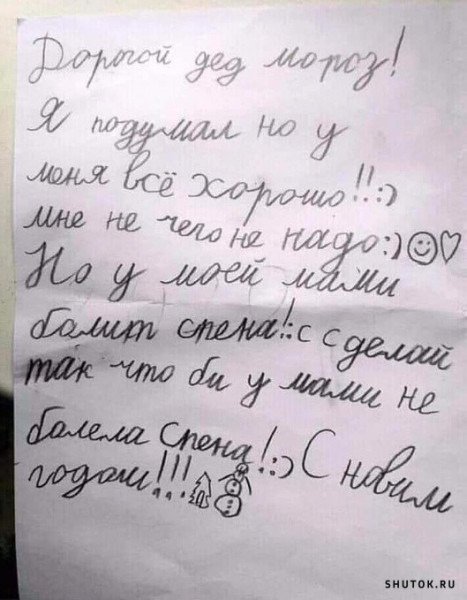 Дорогой дед мороз!
Я подумал но у
меня всё хорошо!!:)
мне не чего не надо:)☺♡
Но у моей мами
балит спена!:с сделай
так что би у мами не
балела спена!:) С новим
годом!!!
SHUTOK.RU